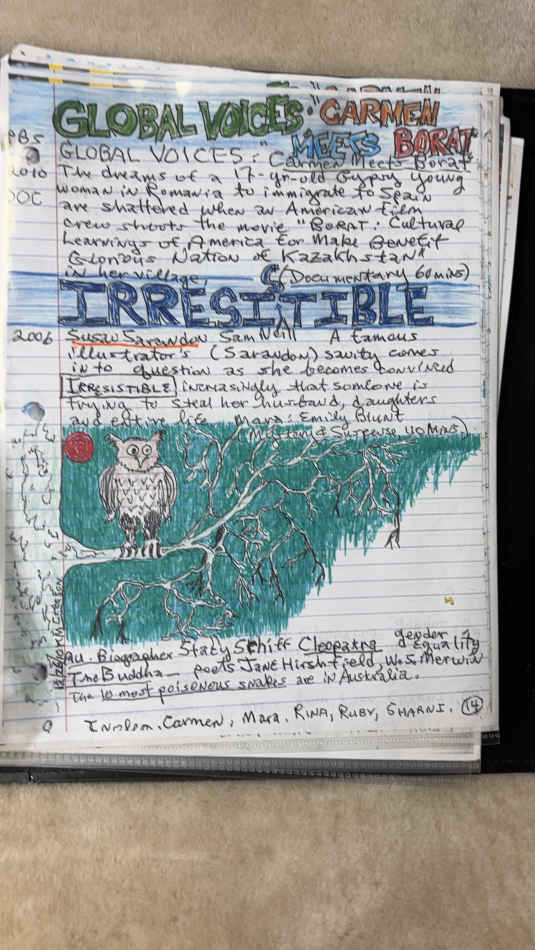 GLOBAL VOICES: "CARMEN
MEETS BORAT"
PBS
GLOBAL VOICES: "Carmen Meets Borat"
2010
The dreams of a 17-yr-old Gypsy young
DOC
woman in Romania to immigrate to Spain
are shattered when an American film
crew shoots the movie "BORAT: Cultural
Learnings of America for Make Benefit
Glorious Nation of Kazakhstan"
in her village (Documentary 60 mins)
IRRESISTIBLE
2006 Susan Sarandon Sam Neill A famous
illustrator's (Sarandon) sanity comes
in to question as she becomes convinced
IRRESISTIBLE increasingly that someone is
trying to steal her husband, daughters
and entire life Mara: Emily Blunt
(Mystery & Suspense 110 mins)
Au. Biographer Stacy Schiff Cleopatra gender equality
The Buddha — poets Jane Hirshfield, W.S. Merwin
The 10 most poisonous snakes are in Australia.
Carmen, Mara, Rina, Ruby, SHARNI. 14